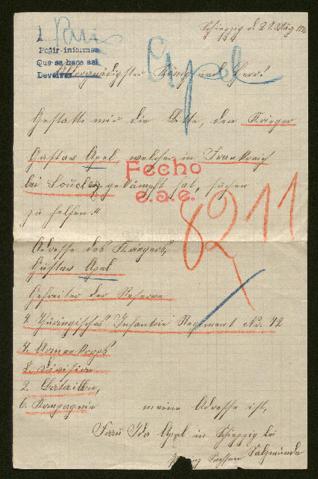 1 Paris
Pedir informes
Que se hace así
Devolver
Apel
Schiepzig d. 21. Aug 1916
Allergnädigster König und Herr!
Gestatte mir die Bitte, den Krieger
Gustav Apel welcher in Frankreich
bei gekämpft hat, suchen
zu helfen.
Fecho
8211
Adresse des Kriegers,
Gustav Apel
Gefreiter der Reserve
4. Thüringisches Infanterie Regiment No. 72
4. Armeekorps
8. Division
2. Bataillon,
6. Kompagnie
meine Adresse ist,
Frau Ida Apel in Schiepzig bei
Salzmünde
Sachsen